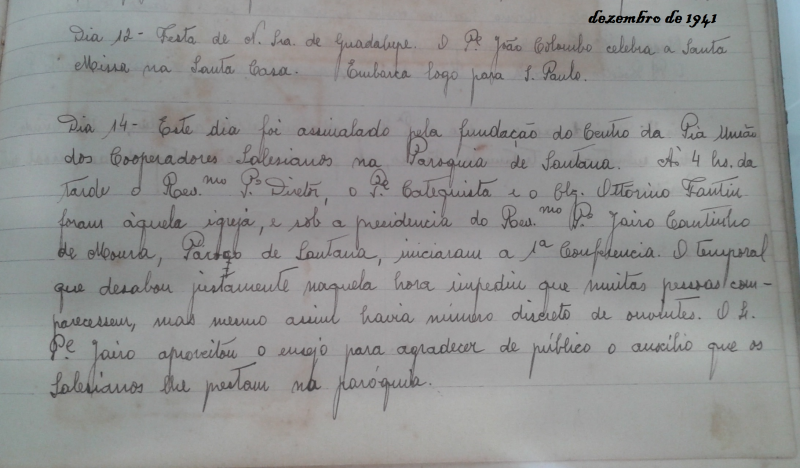 dezembro de 1941
Dia 12 - Festa de N. Sra. de Guadalupe. O Pe. João Colombo celebra a Santa
Missa na Santa Casa. Embarca logo para S. Paulo.
Dia 14 - Este dia foi assinalado pela fundação do Centro da Pia União
dos Cooperadores Salesianos na Paroquia de Santana. Às 4 hs. da
tarde o Rev.mo P.e Diretor, o P.e Catequista e o Clg. Ottorino Fantin
foram àquela igreja, e sob a presidencia do Rev.mo P.e Jairo Coutinho
de Moura, Paroco de Santana, iniciaram a 1ª Conferencia. O temporal
que desabou justamente naquela hora impediu que muitas pessoas com-
parecessem, mas mesmo assim havia número discreto de ouvintes. O
P.e Jairo aproveitou o ensejo para agradecer de público o auxílio que os
Salesianos lhe prestam na paróquia.